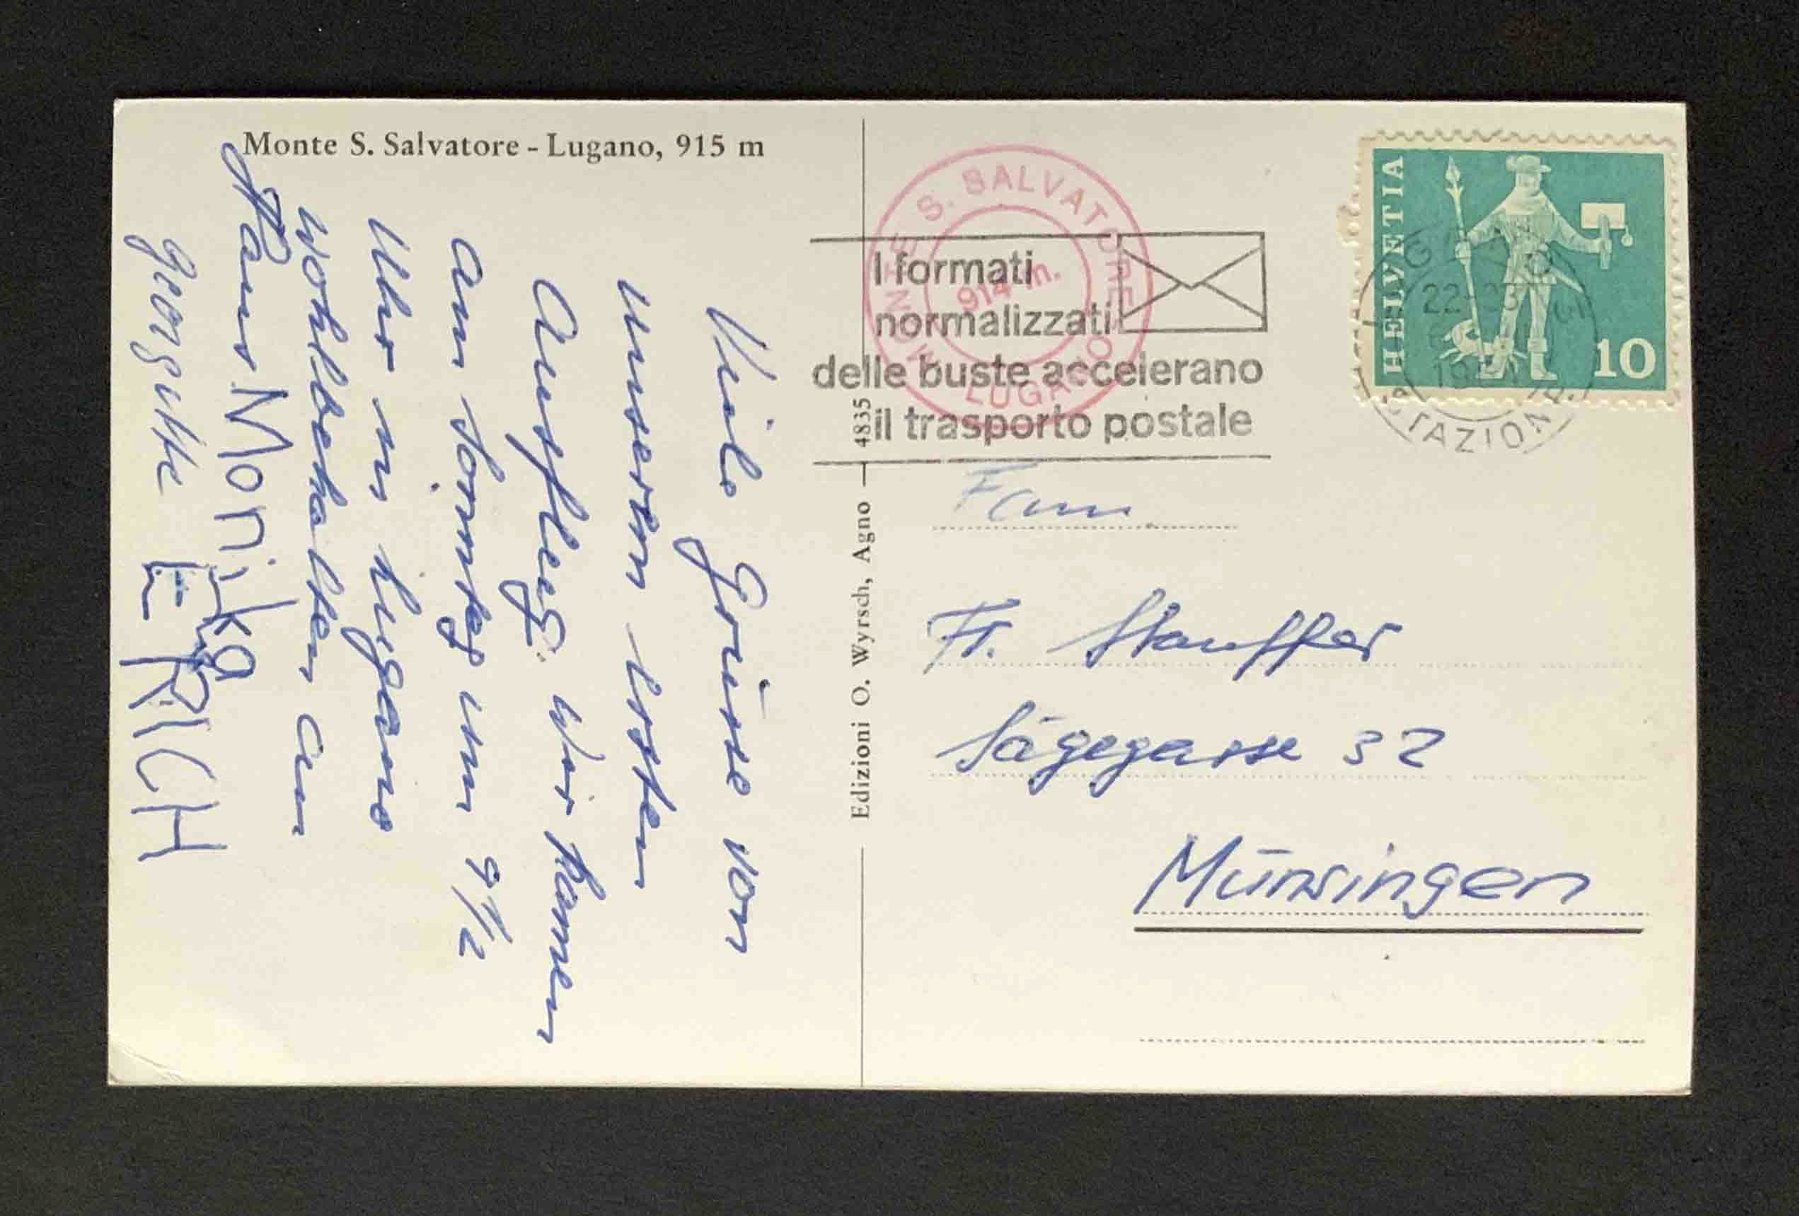 Monte S. Salvatore - Lugano, 915 m
Viele Grüsse von
unserem ersten
Ausflug. Wir kamen
am Sonntag um 9 1/2
Uhr in Lugano
wohlbehalten an
Hans Monika
Georgette ERICH
Edizioni O. Wyrsch, Agno — 4835
MONTE S. SALVATORE
914 m.
LUGANO
I formati
normalizzati
delle buste accelerano
il trasporto postale
HELVETIA
10
LUGANO
22-23
STAZIONE
Fam.
Fr. Stauffer
Sägegasse 32
Münsingen